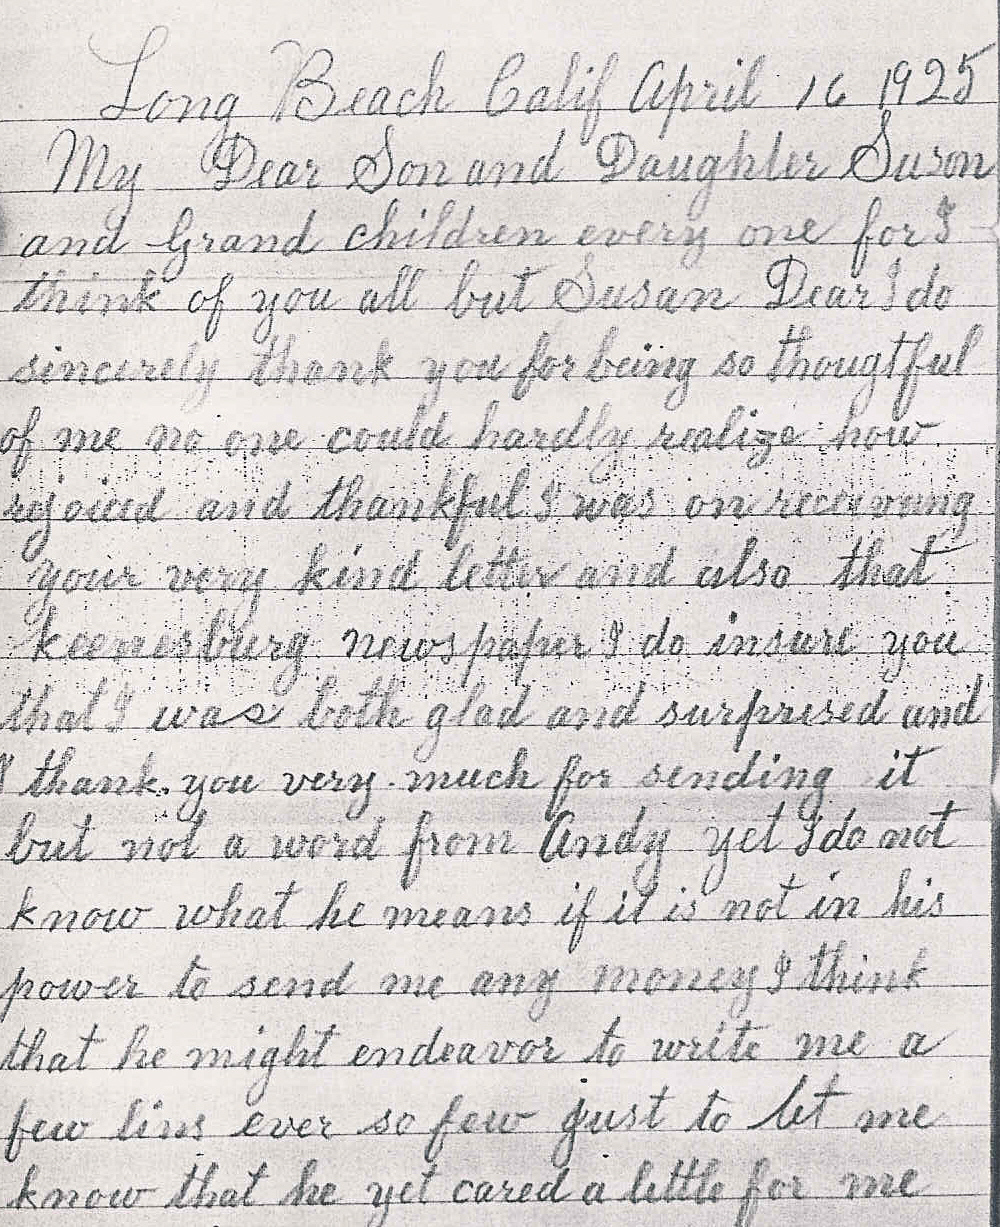 Long Beach Calif April 16 1925
My Dear Son and Daughter Suson
and Grand children every one for I
think of you all but Susan Dear I do
sincerely thank you for being so thougtful
of me no one could hardly realize how
rejoiced and thankful I was on receiveing
your very kind letter and also that
keenesburg newspaper I do insure you
that I was both glad and surprised and
I thank you very much for sending it
but not a word from Andy yet I do not
know what he means if it is not in his
power to send me any money I think
that he might endeavor to write me a
few lins ever so few just to let me
know that he yet cared a little for me